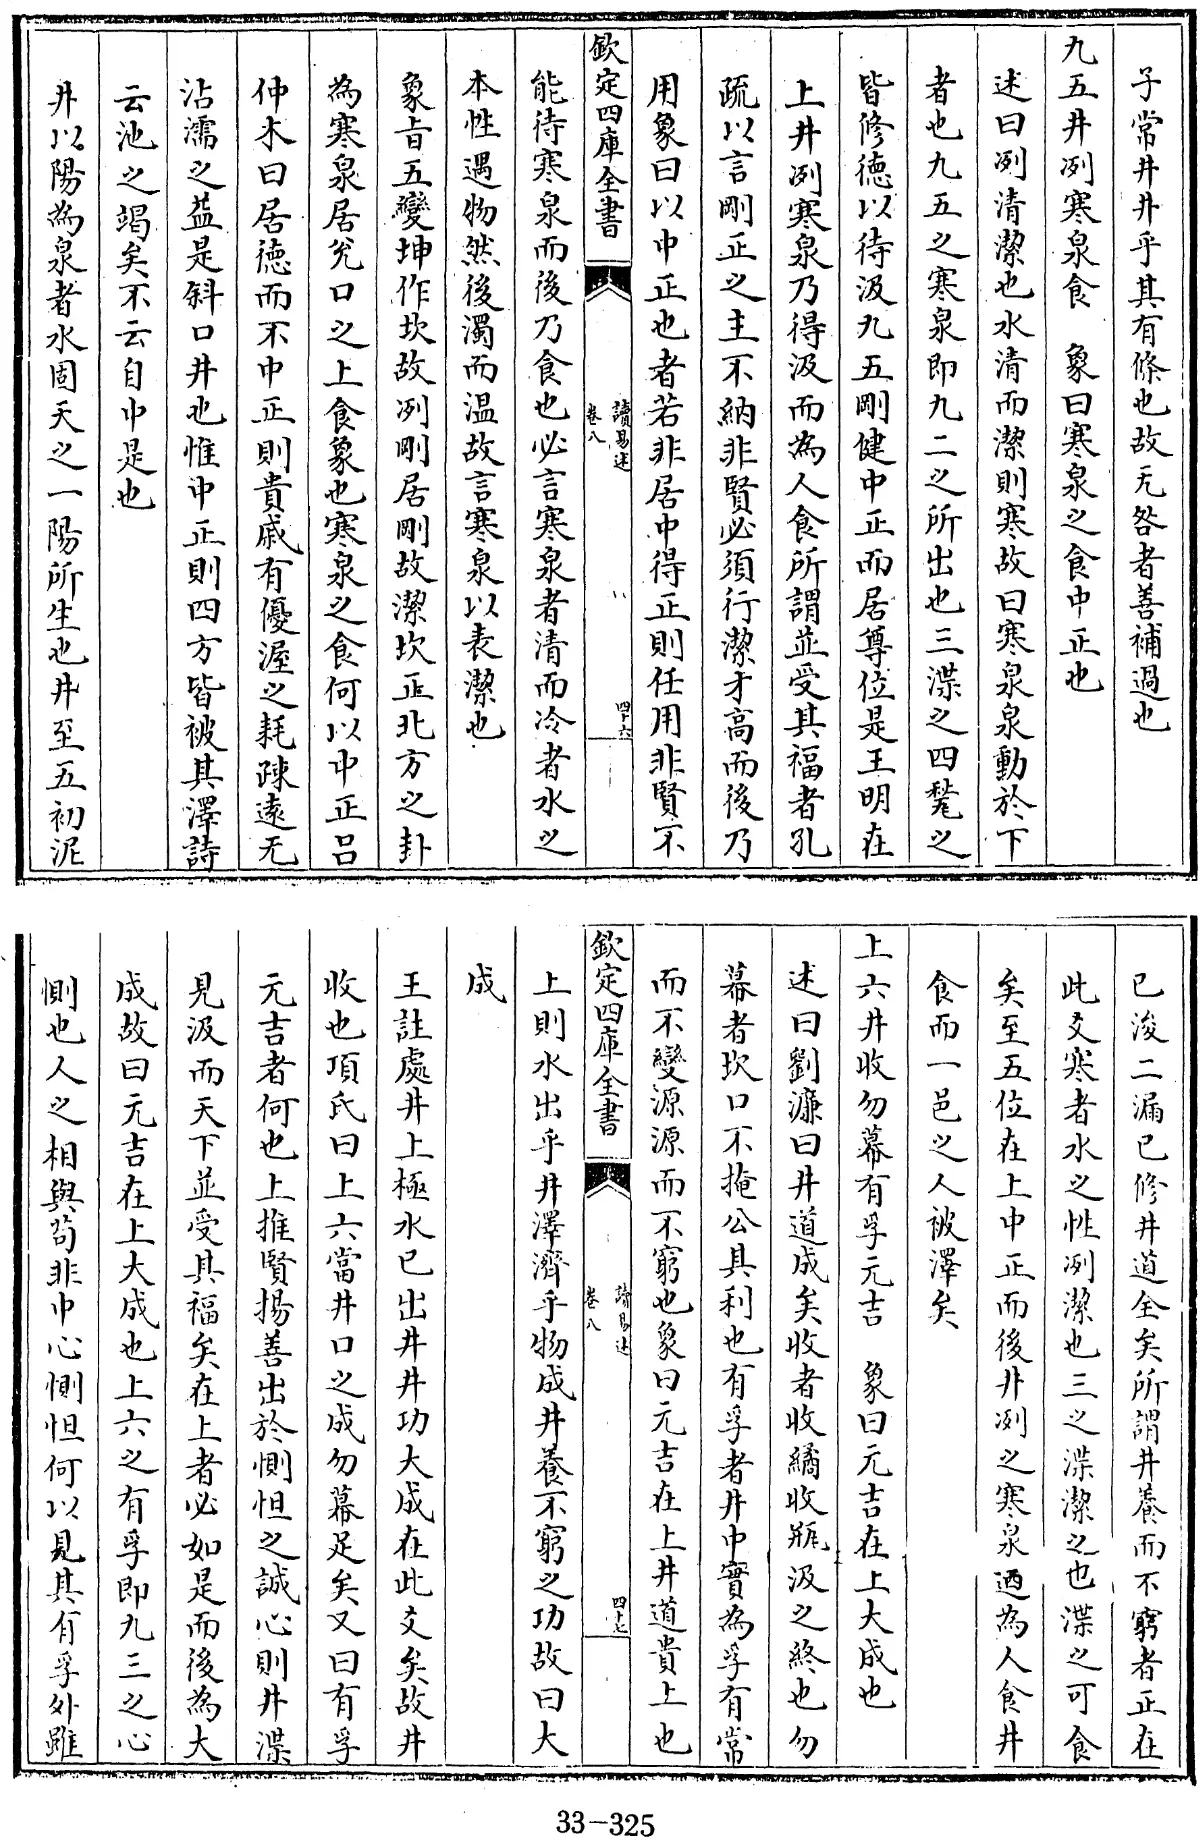 子常井井乎其有條也故无咎者善補過也
九五井冽寒泉食　象曰寒泉之食中正也
述曰冽清潔也水清而潔則寒故曰寒泉泉動於下
者也九五之寒泉即九二之所出也三渫之四甃之
皆修德以待汲九五剛健中正而居尊位是王明在
上井冽寒泉乃得汲而為人食所謂並受其福者孔
疏以言剛正之主不納非賢必須行潔才高而後乃
用象曰以中正也者若非居中得正則任用非賢不
欽定四庫全書
讀易述
卷八
四十六
能待寒泉而後乃食也必言寒泉者清而冷者水之
本性遇物然後濁而温故言寒泉以表潔也
象旨五變坤作坎故冽剛居剛故潔坎正北方之卦
為寒泉居兌口之上食象也寒泉之食何以中正呂
仲木曰居德而不中正則貴戚有優渥之耗疎遠无
沾濡之益是斜口井也惟中正則四方皆被其澤詩
云池之竭矣不云自中是也
井以陽為泉者水固天之一陽所生也井至五初泥
已浚二漏已修井道全矣所謂井養而不窮者正在
此爻寒者水之性冽潔也三之渫潔之也渫之可食
矣至五位在上中正而後井冽之寒泉迺為人食井
食而一邑之人被澤矣
上六井收勿幕有孚元吉　象曰元吉在上大成也
述曰劉濂曰井道成矣收者收繘收瓶汲之終也勿
幕者坎口不掩公其利也有孚者井中實為孚有常
而不變源源而不窮也象曰元吉在上井道貴上也
欽定四庫全書
讀易述
卷八
四十七
上則水出乎井澤濟乎物成井養不窮之功故曰大
成
王註處井上極水已出井井功大成在此爻矣故井
收也項氏曰上六當井口之成勿幕足矣又曰有孚
元吉者何也上推賢揚善出於惻怛之誠心則井渫
見汲而天下並受其福矣在上者必如是而後為大
成故曰元吉在上大成也上六之有孚即九三之心
惻也人之相與苟非中心惻怛何以見其有孚外雖
33-325